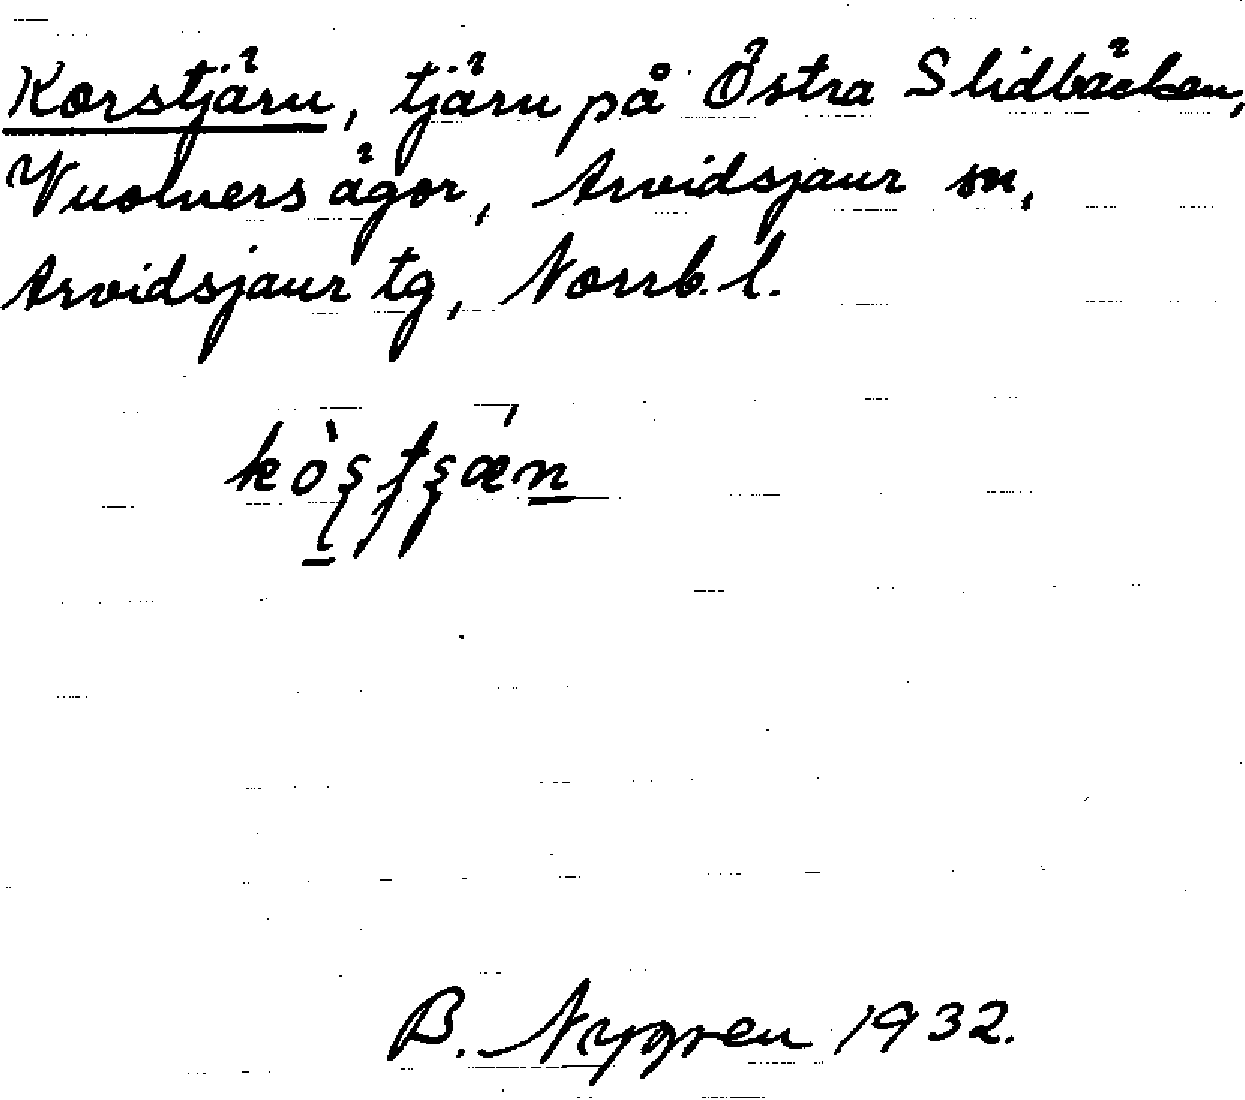 Korstjärn, tjärn på Östra Slidbäcken,
Vuolvers ägor, Arvidsjaur sn,
Arvidsjaur tg, Norrb. l.
B. Nygren 1932.